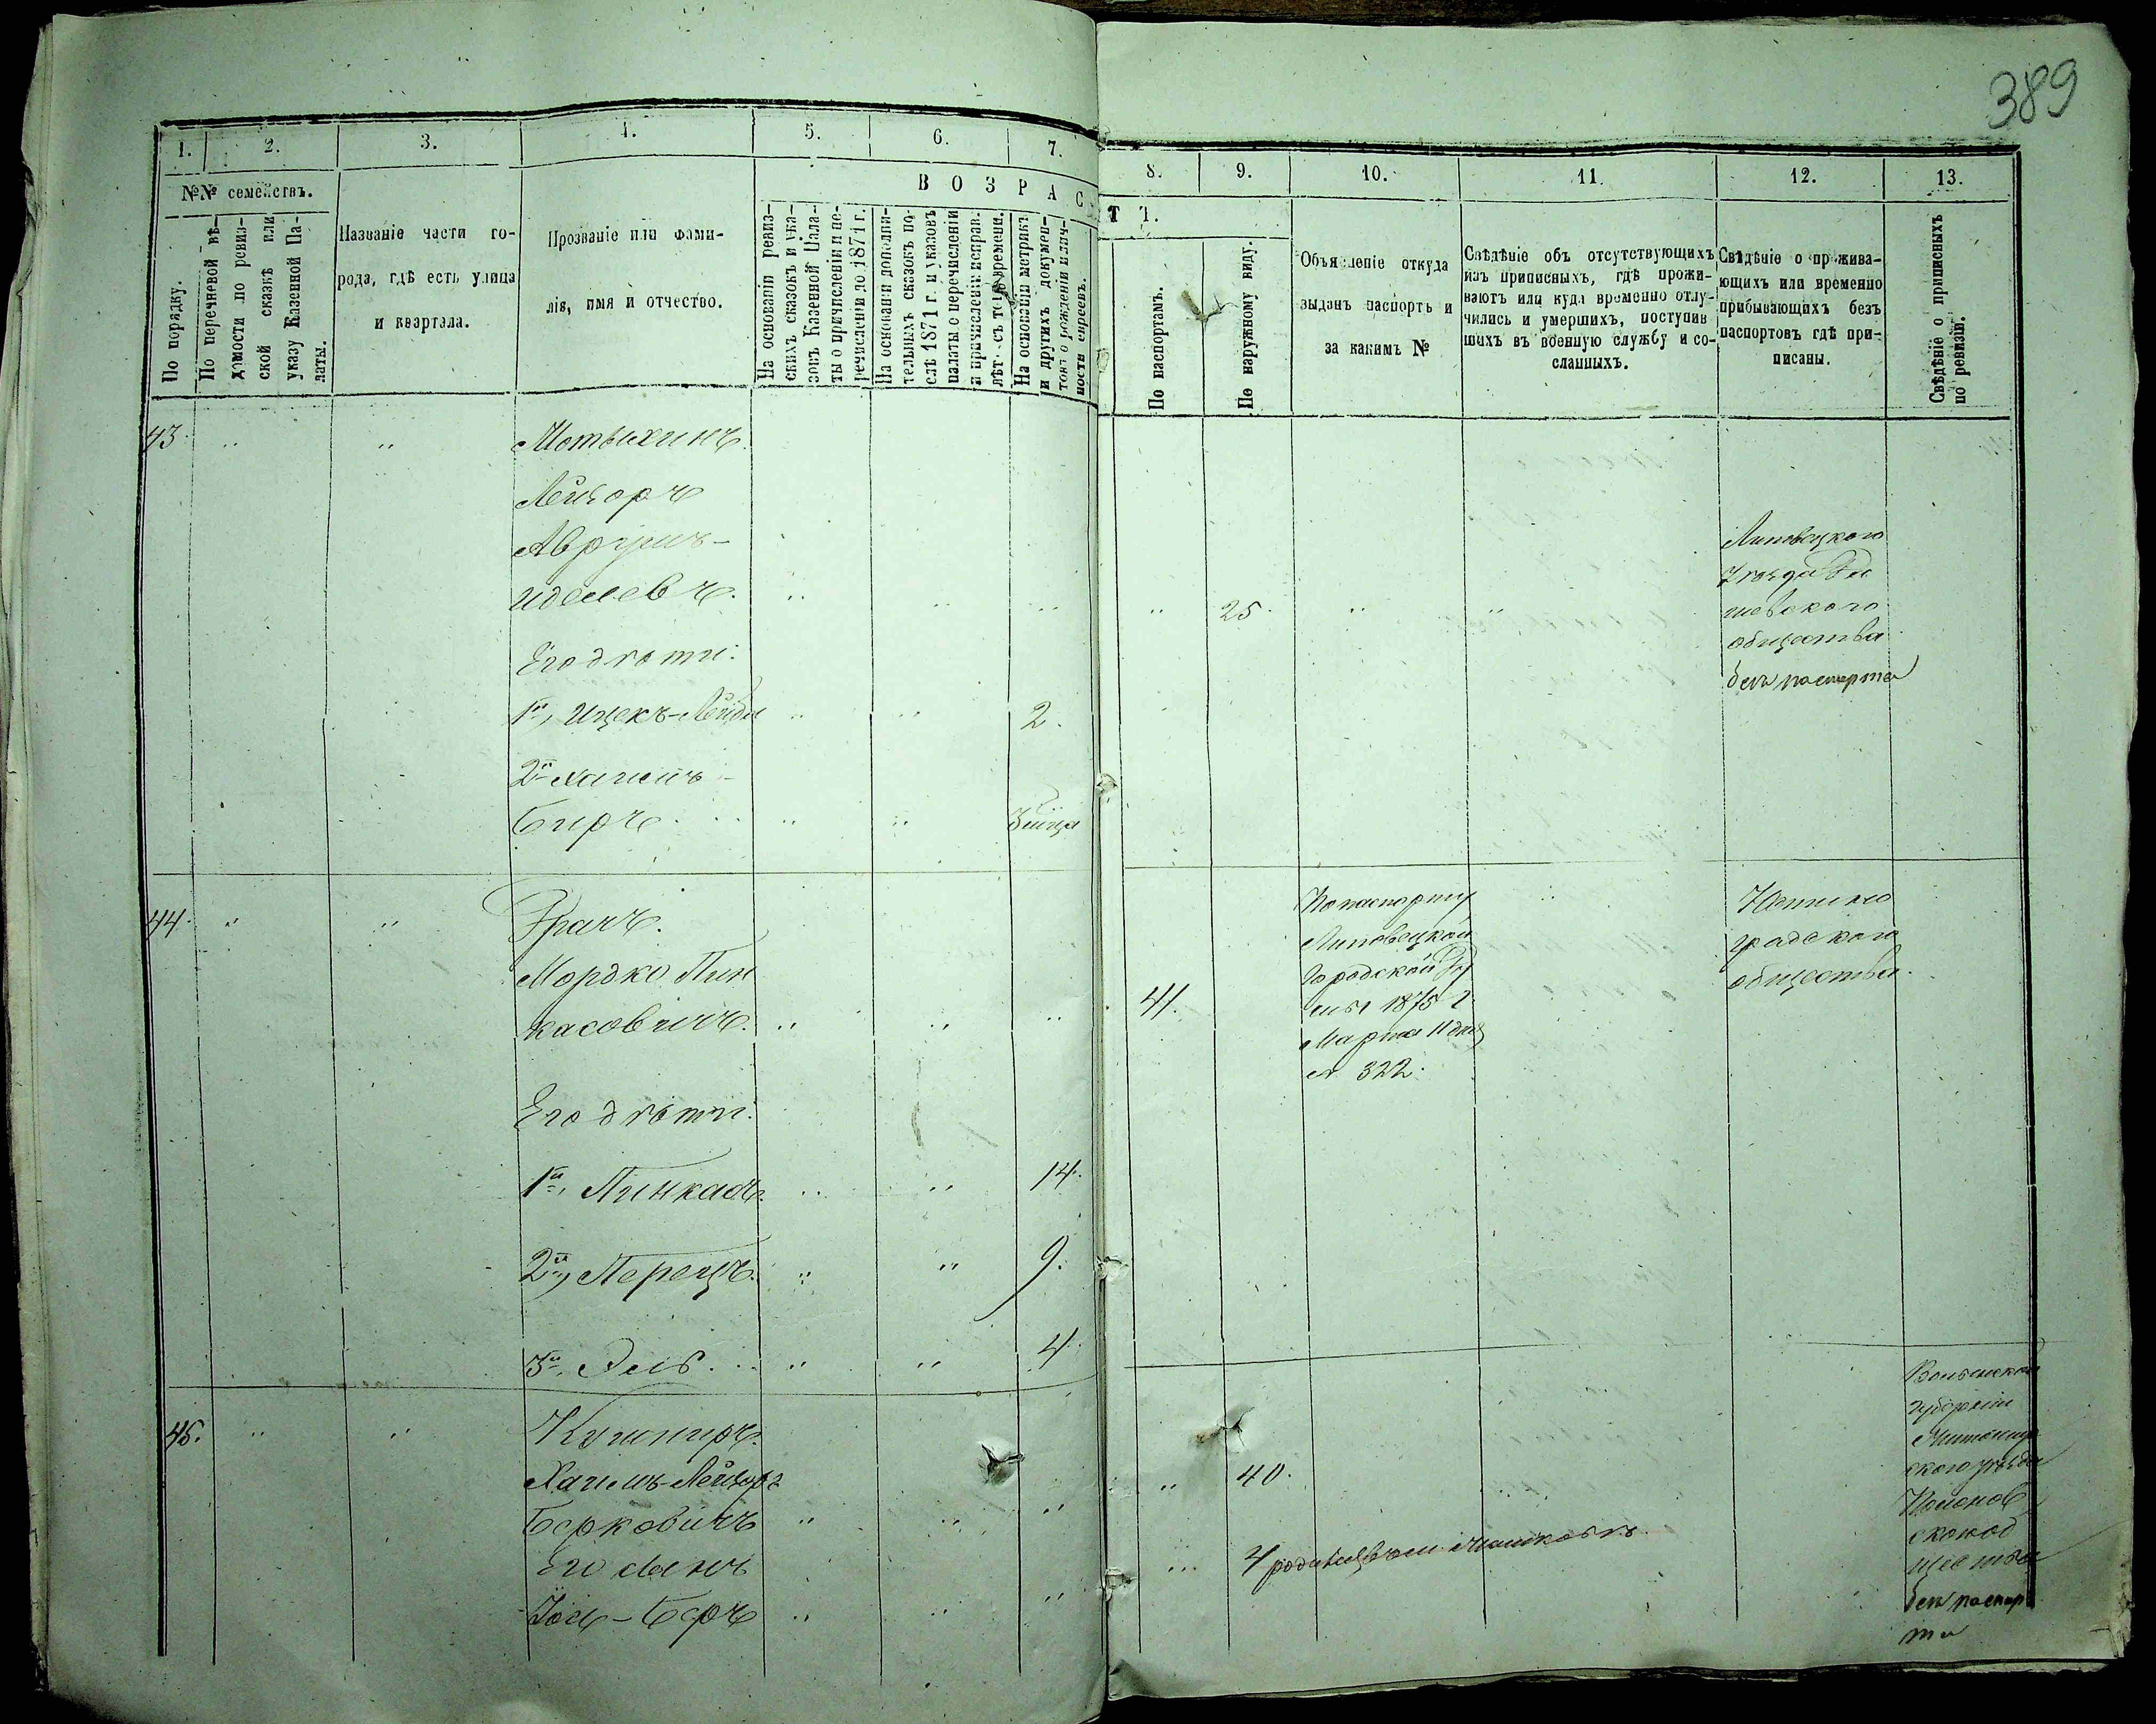 389
1.
2.
3.
4.
5.
6.
7.
8.
9.
10.
11.
12.
13.
№№ семействъ.
По порядку.
По перечневой вѣ-
домости по ревиз-
ской сказкѣ или
указу Казенной Па-
латы.
Названіе части го-
рода, гдѣ есть улица
и квартала.
Прозваніе или фами-
лія, имя и отчество.
В О З Р А С
Т Ъ.
На основаніи ревиз-
скихъ сказокъ и ука-
зовъ Казенной Пала-
ты о причисленіи и пе-
речисленіи до 1871 г.
На основаніи дополни-
тельныхъ сказокъ по-
слѣ 1871 г. и указовъ
палаты о перечисленіи
и причисленіи исправ.
лѣт. съ того времени.
На основаніи метрикъ
и другихъ докумен-
товъ о рожденіи
евреевъ.
По паспортамъ.
По наружному виду.
Объясленіе откуда
выданъ паспортъ и
за какимъ №
Свѣдѣніе объ отсутствующихъ
изъ приписныхъ, гдѣ прожи-
ваютъ или куда временно отлу-
чились и умершихъ, поступив
шихъ въ военную службу и со-
сланныхъ.
Свѣдѣніе о прожива-
ющихъ или временно
прибывающихъ безъ
паспортовъ гдѣ при-
писаны.
Свѣдѣніе о приписныхъ
по ревизіи.
43.
Мотыхинъ.
Лейзоръ
Аврумъ-
Иделевъ.
25.
Липовецкаго
уѣзда
шевскаго
общества
безъ паспорта
Его дѣти:
1й, Ицекъ-Лейба
2.
2й Хаимъ-
Биръ
44.
Грачъ.
Мордко Пин
касовичъ.
41.
По паспорту
Липовецкой
Городской Ду
мы 1875 г.
Марта 11 дня
№ 322.
градскаго
общества.
Его дѣти:
1й, Пинкасъ.
14.
2й, Перецъ.
9.
3й, Эль.
4.
45.
Кушниръ.
Хаимъ-Лейзоръ
Берковичъ
40.
Его сынъ
Іось-Беръ
4
Волынской
губерніи
Житомир
скаго уѣзда
скаго об
щества
безъ паспор
та